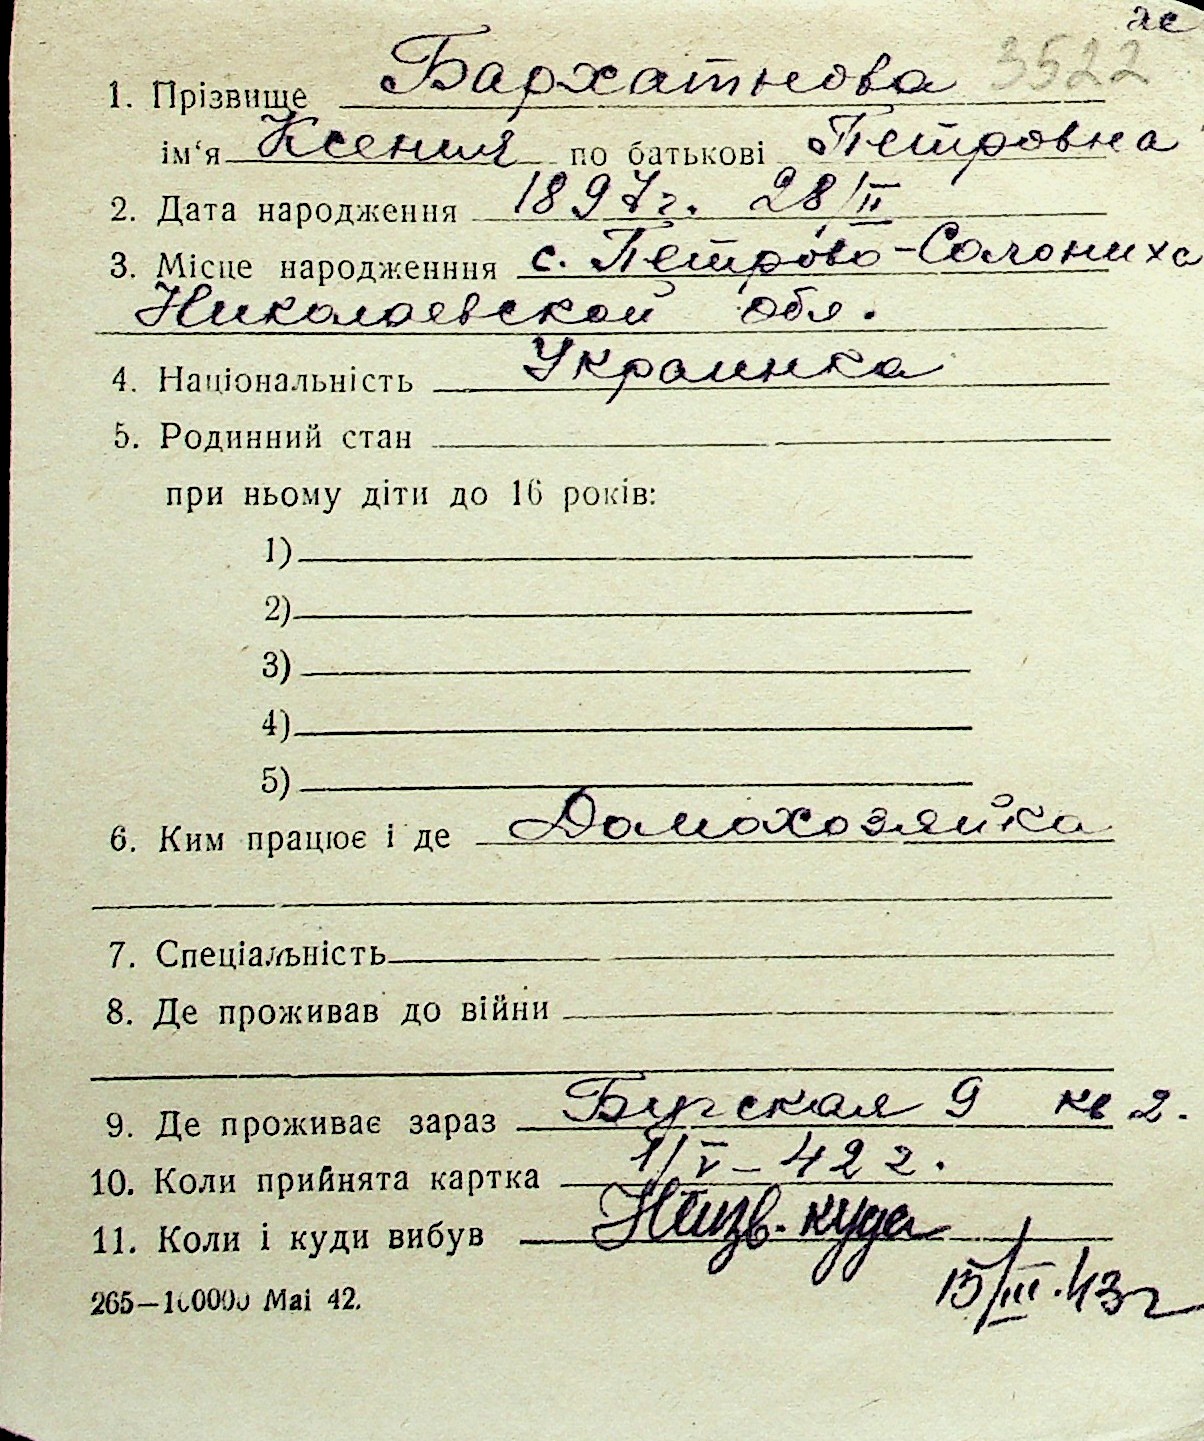 же
3522
1. Прізвище Бархатнова
ім'я Ксения по батькові Петровна
2. Дата народження 1897г. 28/II
3. Місце народженння с. Петрово-Солониха
Николаевской обл.
4. Національність Украинка
5. Родинний стан
при ньому діти до 16 років:
1)
2)
3)
4)
5)
6. Ким працює і де Домохозяйка
7. Спеціальність
8. Де проживав до війни
9. Де проживає зараз Бугская 9 кв 2.
10. Коли прийнята картка 1/V-42 г.
11. Коли і куди вибув Неизв. куда
15/III.43г
265—100000 Mai 42.